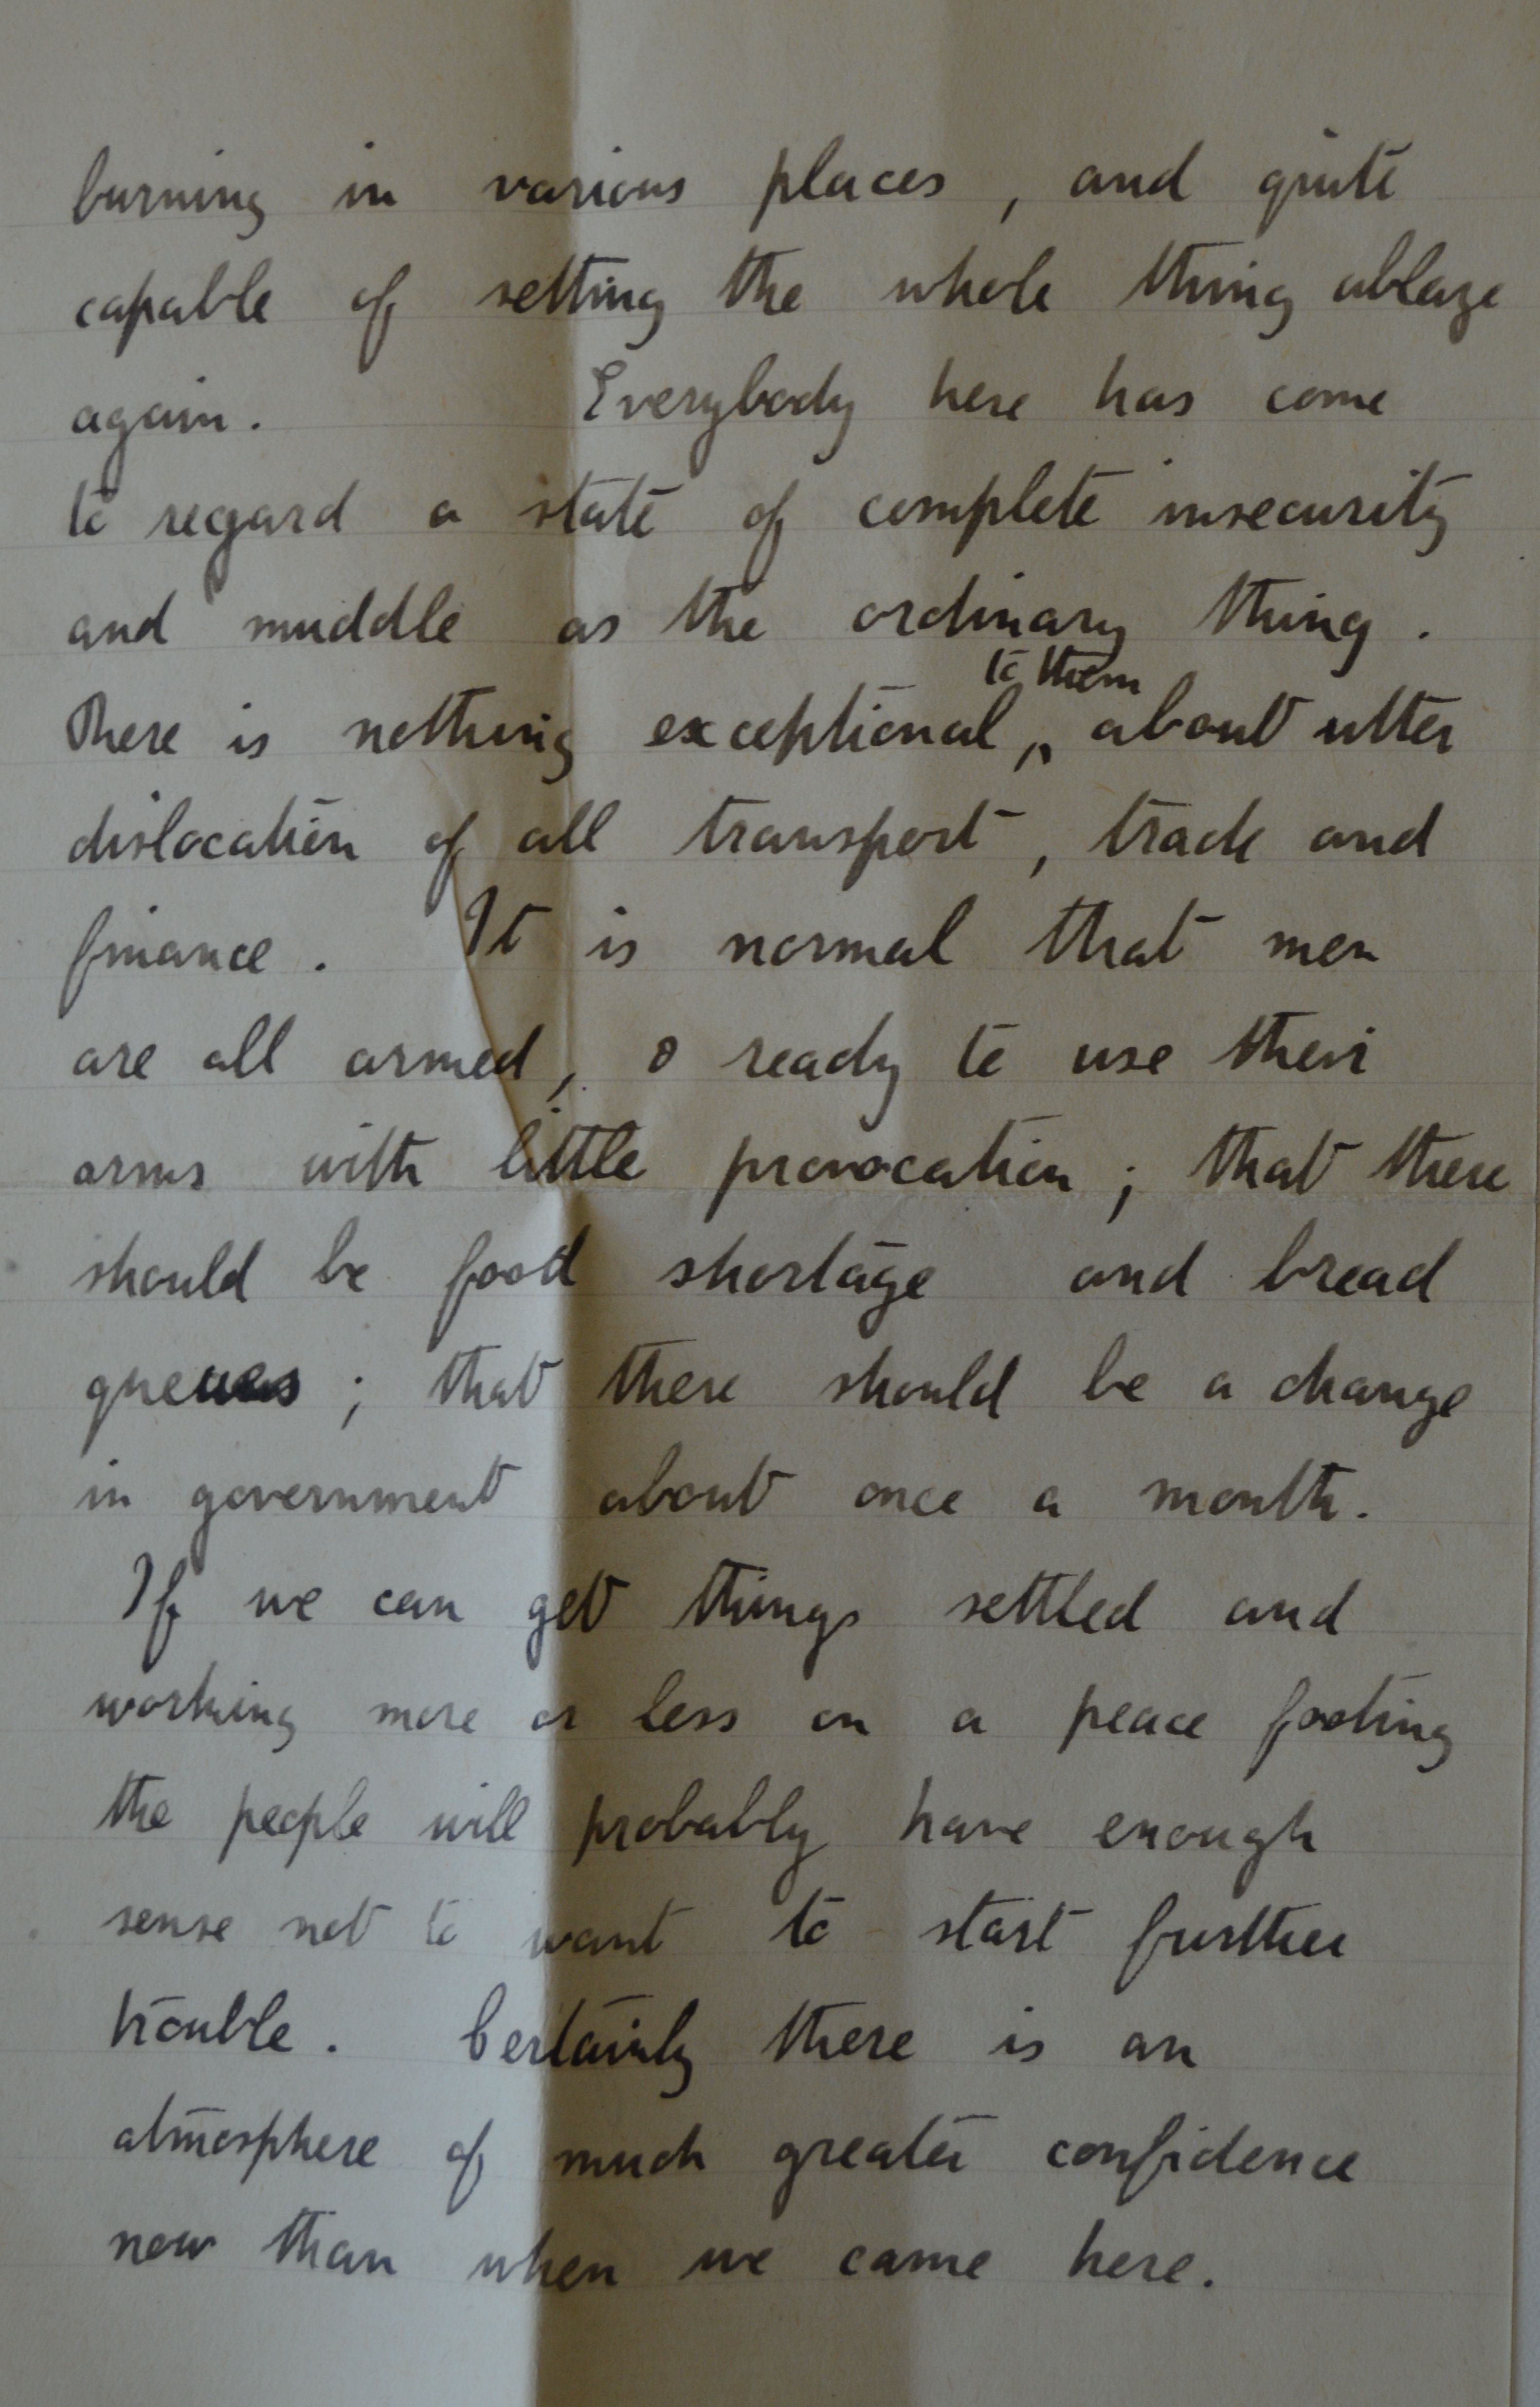 burning in various places, and quite
capable of setting the whole thing ablaze
again. Everybody here has come
to regard a state of complete insecurity
and muddle as the ordinary thing.
to them
There is nothing exceptional, ^ about utter
dislocation of all transport, trade and
finance. It is normal that men
are all armed, & ready to use their
arms with little provocation; that there
should be food shortage and bread
queues; that there should be a change
in government about once a month.
If we can get things settled and
working more or less on a peace footing
the people will probably have enough
sense not to want to start further
trouble. Certainly there is an
atmosphere of much greater confidence
now than when we came here.